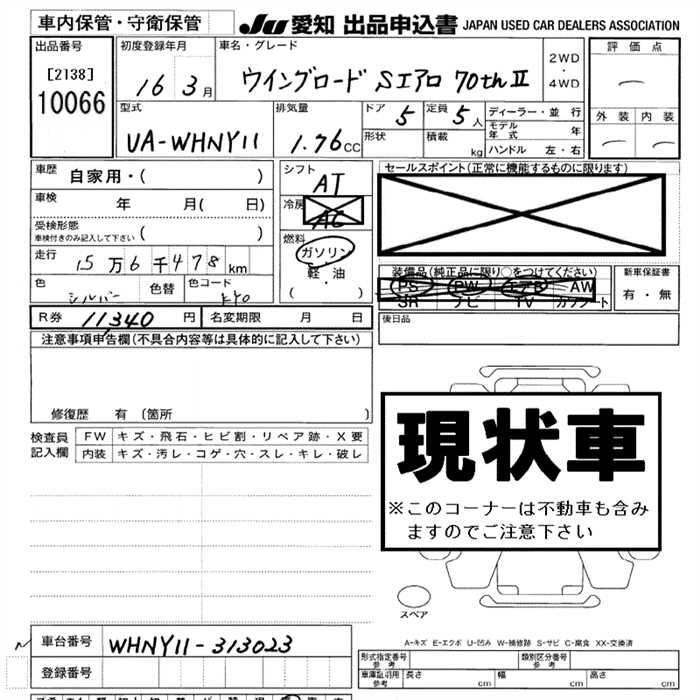 車内保管・守衛保管 JU 愛知 出品申込書 JAPAN USED CAR DEALERS ASSOCIATION
出品番号 初度登録年月 車名・グレード 評価点
[2138] 10066 16 3月 ウイングロード Sエアロ 70th II 2WD・4WD
型式 排気量 ドア 5 定員 5人 ディーラー・並行 外装 内装
UA-WHNY11 1.76CC 形状 積載 kg モデル年式 年
ハンドル 左・右
車歴 自家用・( ) シフト AT セールスポイント(正常に機能するものに限ります)
車検 年 月( 日) 冷房 AC
受検形態 ( )
車検付きのみ記入して下さい
燃料 ガソリン
軽・油
( )
走行 15万6千478km 装備品(純正品に限り○をつけてください) 新車保証書
PS PW エアB AW 有・無
SR ナビ TV カワシート
色 シルバー 色替 色コード KY0
R券 11,340円 名変期限 月 日 後日品
注意事項申告欄(不具合内容等は具体的に記入して下さい)
修復歴 有 〔箇所 〕
現状車
※このコーナーは不動車も含み
ますのでご注意下さい
検査員記入欄 FW キズ・飛石・ヒビ割・リペア跡・X要
内装 キズ・汚レ・コゲ・穴・スレ・キレ・破レ
スペア
A-キズ E-エクボ U-凹み W-補修跡 S-サビ C-腐食 XX-交換済
車台番号 WHNY11-313023
登録番号
形式指定番号 参考 類別区分番号 参考
車庫証明用 参考 長さ cm 幅 cm 高さ cm